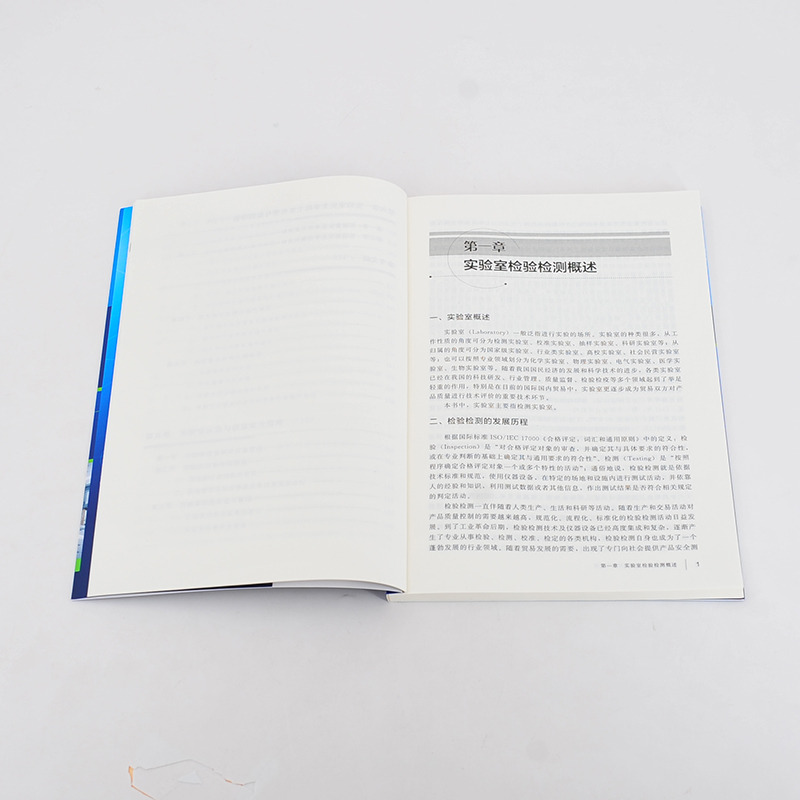 第一章
实验室检验检测概述
一、实验室概述
实验室（Laboratory）一般泛指进行实验的场所。实验室的种类很多，从工
作性质的角度可分为检测实验室、校准实验室、抽样实验室、科研实验室等；从
归属的角度可分为国家级实验室、行业类实验室、高校实验室、社会民营实验室
等；也可以按照专业领域划分为化学实验室、物理实验室、电气实验室、医学实
验室、生物实验室等。随着我国国民经济的发展和科学技术的进步，各类实验室
已经在我国的科技研发、行业管理、质量监督、检验检疫等多个领域起到了举足
轻重的作用；特别是在目前的国际国内贸易中，实验室更逐步成为贸易双方对产
品质量进行技术评价的重要技术环节。
本书中，实验室主要指检测实验室。
二、检验检测的发展历程
根据国际标准 ISO/IEC 17000《合格评定，词汇和通用原则》中的定义：检
验（Inspection）是“对合格评定对象的审查，并确定其与具体要求的符合性，
或在专业判断的基础上确定其与通用要求的符合性”。检测（Testing）是“按照
程序确定合格评定对象一个或多个特性的活动”；通俗地说，检验检测就是依据
技术标准和规范，使用仪器设备，在特定的场地和设施内进行测试活动，并依靠
人的经验和知识，利用测试数据或者其他信息，作出测试结果是否符合相关规定
的判定活动。
检验检测一直伴随着人类生产、生活和科研等活动。随着生产和交易活动对
产品质量控制的需要越来越高，规范化、流程化、标准化的检验检测活动日益发
展。到了工业革命后期，检验检测技术及仪器设备已经高度集成和复杂，逐渐产
生了专业从事检验、检测、校准、检定的各类机构，检验检测自身也成为了一个
蓬勃发展的行业领域。随着贸易发展的需要，出现了专门向社会提供产品安全测
第一章 实验室检验检测概述 1